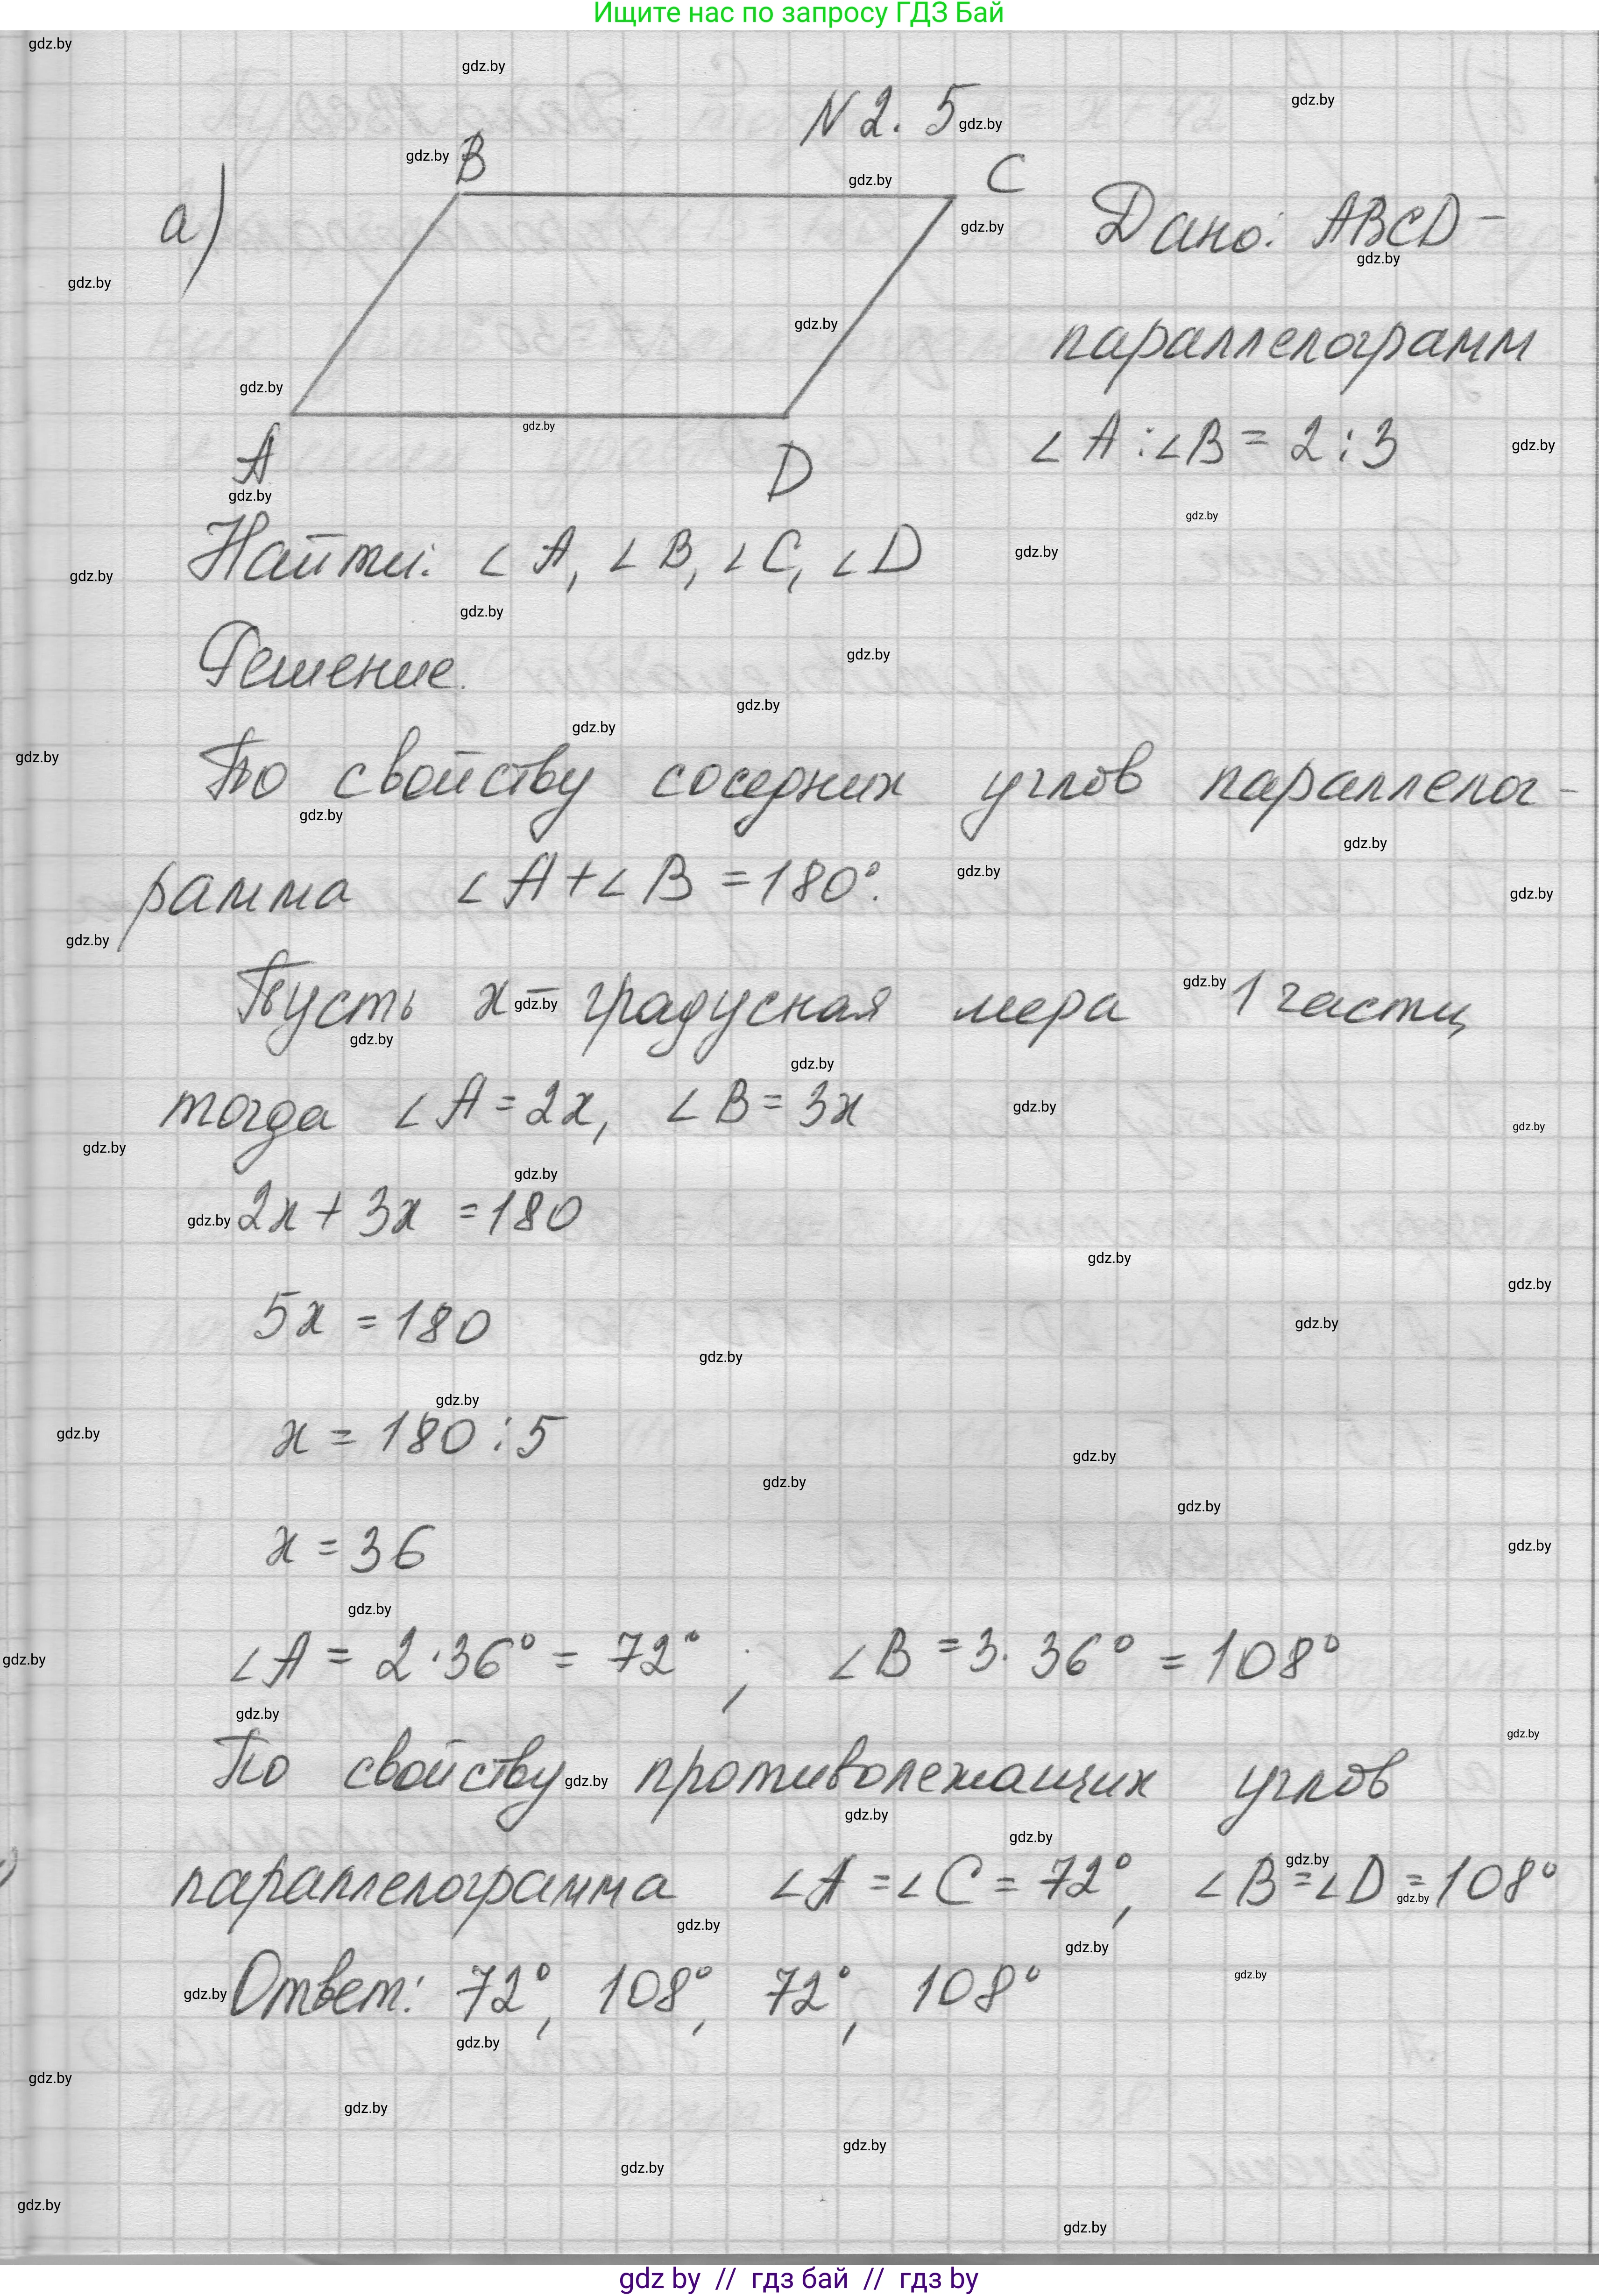 Ищите нас по запросу ГДЗ Бай
N 2. 5
а)
B
C
A
D
Дано: ABCD -
параллелограмм
∠A:∠B = 2:3
Найти: ∠A, ∠B, ∠C, ∠D
Решение.
По свойству соседних углов параллелог-
рамма ∠A+∠B = 180°.
Пусть x - градусная мера 1 части,
тогда ∠A = 2x, ∠B = 3x
2x + 3x = 180
5x = 180
x = 180 : 5
x = 36
∠A = 2·36° = 72° ; ∠B = 3·36° = 108°
По свойству противолежащих углов
параллелограмма ∠A = ∠C = 72°, ∠B = ∠D = 108°
Ответ: 72°, 108°, 72°, 108°
gdz.by
gdz by // гдз бай // гдз by